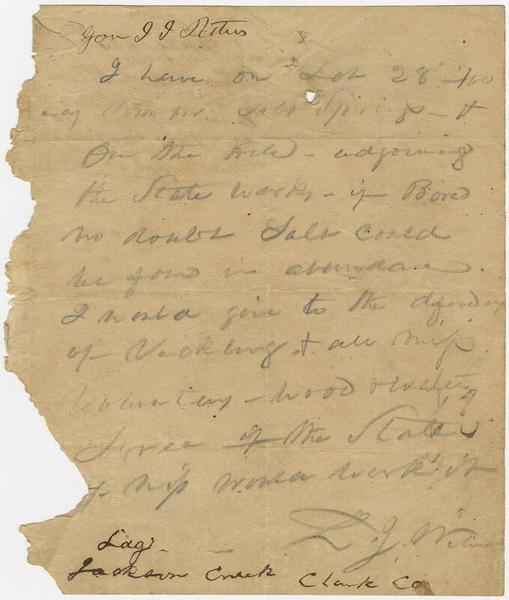 Gov J J Pettus
I have on Lot 28 Too
Salt Springs - &
On the field - adjoining
the State Works - if Bored
no doubt Salt Could
be found in abundance
I would give to the defenders
of Vicksburg & all Miss
Volunteers - wood & water,
free if the State
of Miss would work it
D. J.
Jackson Creek Clark Co